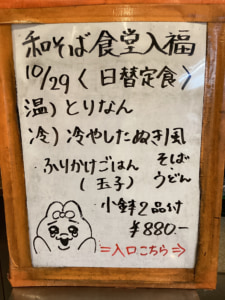 和そば食堂入福
10/29〈日替定食〉
温）とりなん
冷）冷やしたぬき風
そば
・ふりかけごはん ・うどん
（玉子）
小鉢2品付
¥880-
＝入口こちら⇒